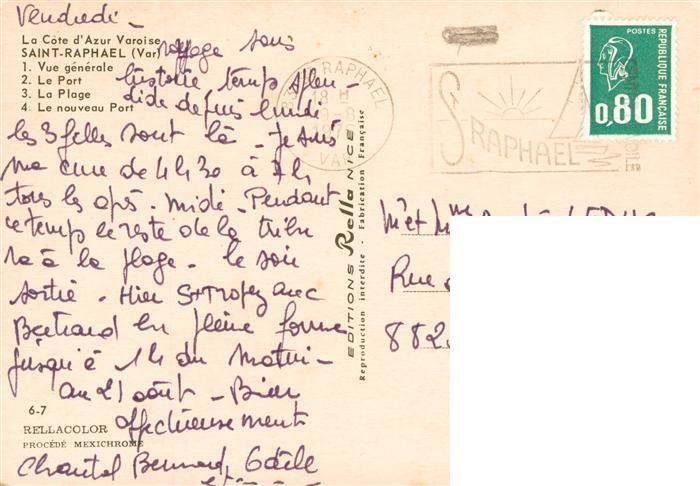 Vendredi -
La Côte d'Azur Varoise
SAINT-RAPHAEL (Var)
1. Vue générale
2. Le Port
3. La Plage
4. Le nouveau Port
voyage sans
histoire, temps splen-
dide depuis lundi
les 3 filles sont là - Je suis
ma cure de 4h30 à 7h
tous les aprs-midi. Pendant
ce temps le reste de la tribu
va à la plage. le soir
sortie. Hier St Tropez avec
Bertrand en pleine forme
jusqu'à 1h du matin -
au 21 août - Bien
affectueusement
Chantal Bernard, Gaële
6-7
RELLACOLOR
PROCÉDÉ MEXICHROME
EDITIONS Rella NICE
Reproduction interdite - Fabrication Française
ST RAPHAEL
18 H
VAR
ST-RAPHAEL
POSTES
REPUBLIQUE FRANÇAISE
0,80
M et Mme
Rue
882